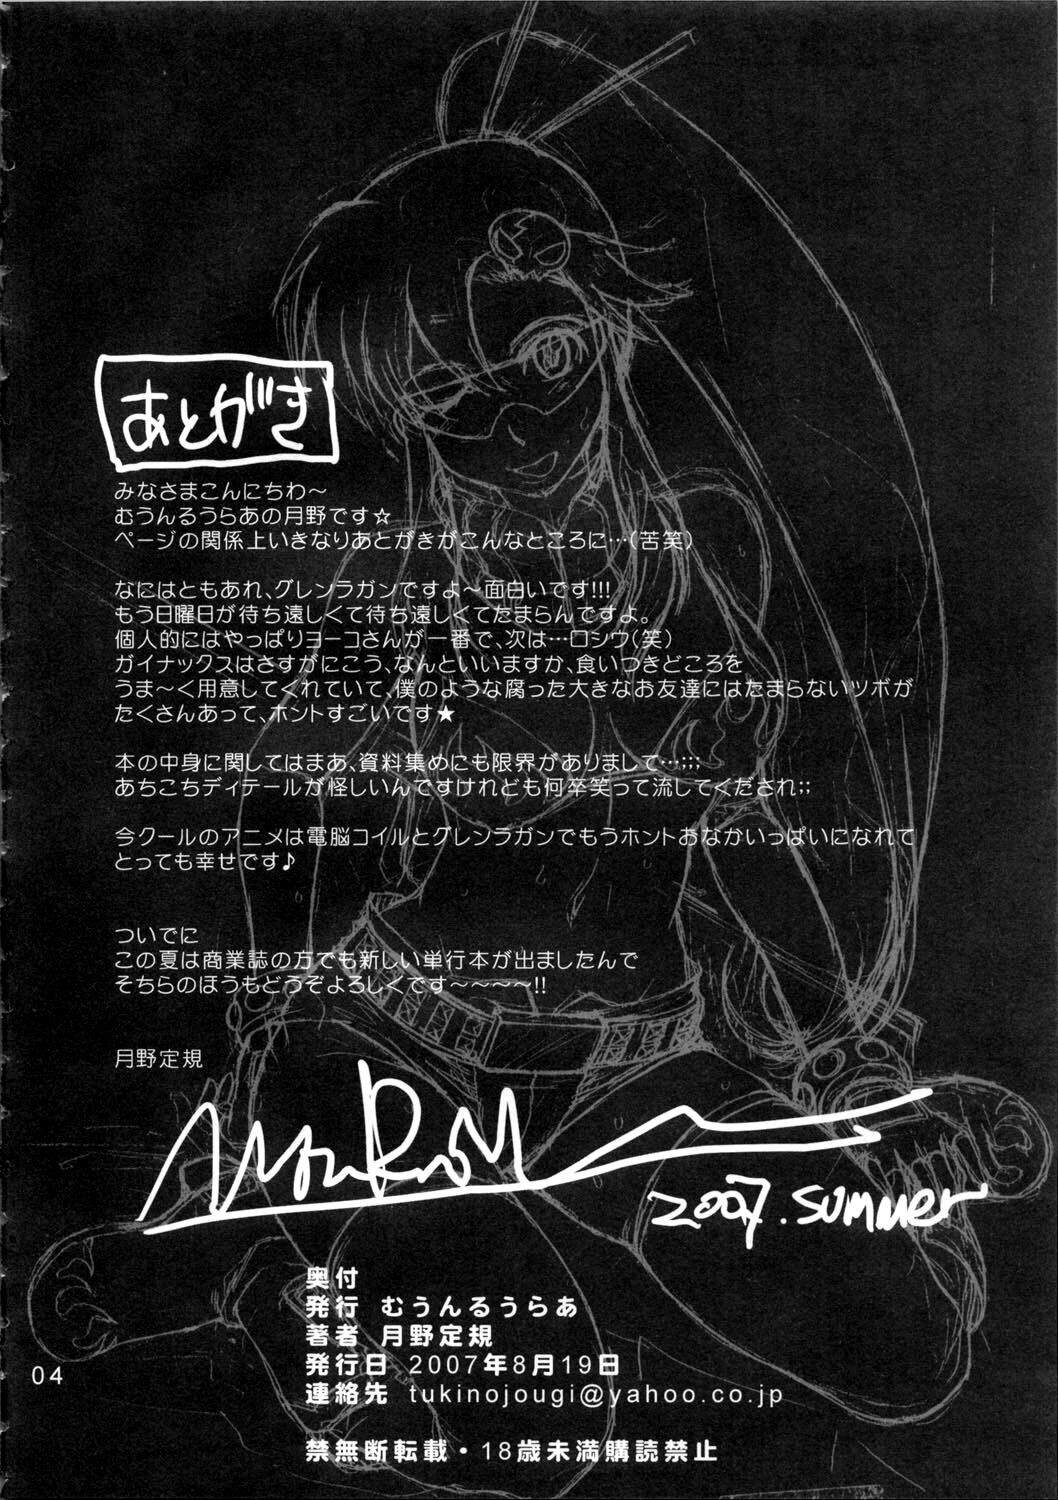 あとがき
みなさまこんにちわ～
むうんるうらあの月野です☆
ページの関係上いきなりあとがきがこんなところに…(苦笑)
なにはともあれ、グレンラガンですよ～面白いです!!!
もう日曜日が待ち遠しくて待ち遠しくてたまらんですよ。
個人的にはやっぱりヨーコさんが一番で、次は…ロシウ(笑)
ガイナックスはさすがにこう、なんといいますか、食いつきどころを
うま～く用意してくれていて、僕のような腐った大きなお友達にはたまらないツボが
たくさんあって、ホントすごいです★
本の中身に関してはまあ、資料集めにも限界がありまして…;;;
あちこちディテールが怪しいんですけれども何卒笑って流してくだされ;;
今クールのアニメは電脳コイルとグレンラガンでもうホントおなかいっぱいになれて
とっても幸せです♪
ついでに
この夏は商業誌の方でも新しい単行本が出ましたんで
そちらのほうもどうぞよろしくです～～～～!!
月野定規
2007.summer
奥付
発行 むうんるうらあ
著者 月野定規
発行日 2007年8月19日
連絡先 tukinojougi@yahoo.co.jp
禁無断転載・18歳未満購読禁止
04